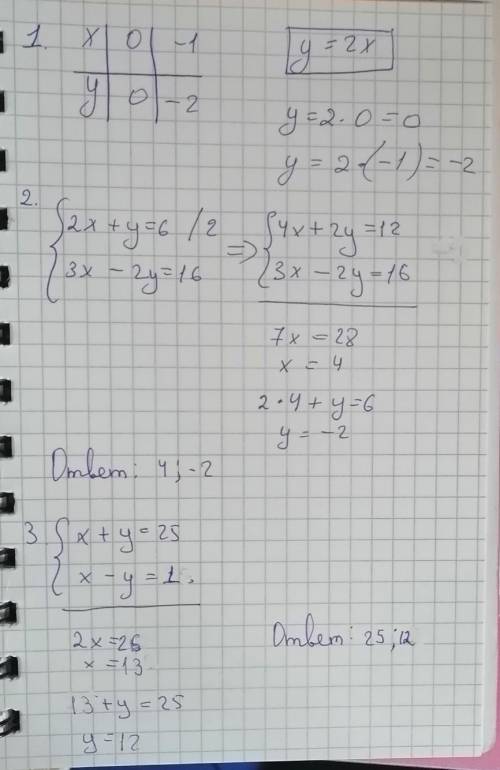 1. x 0 -1
y 0 -2
y = 2x
y = 2 · 0 = 0
y = 2 · (-1) = -2
2.
{2x + y = 6 /2 => {4x + 2y = 12
{3x - 2y = 16 {3x - 2y = 16
7x = 28
x = 4
2 · 4 + y = 6
y = -2
Ответ: 4; -2
3 {x + y = 25
{x - y = 1.
2x = 26
x = 13
13 + y = 25
y = 12
Ответ: 25; 12